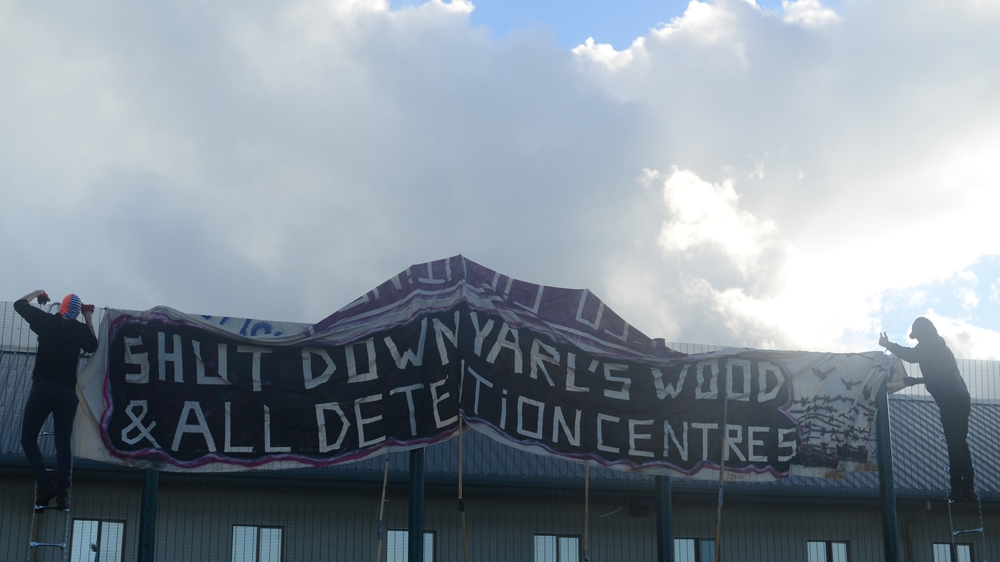 SHUT DOWN YARL'S WOOD
& ALL DETETiON CENTRES